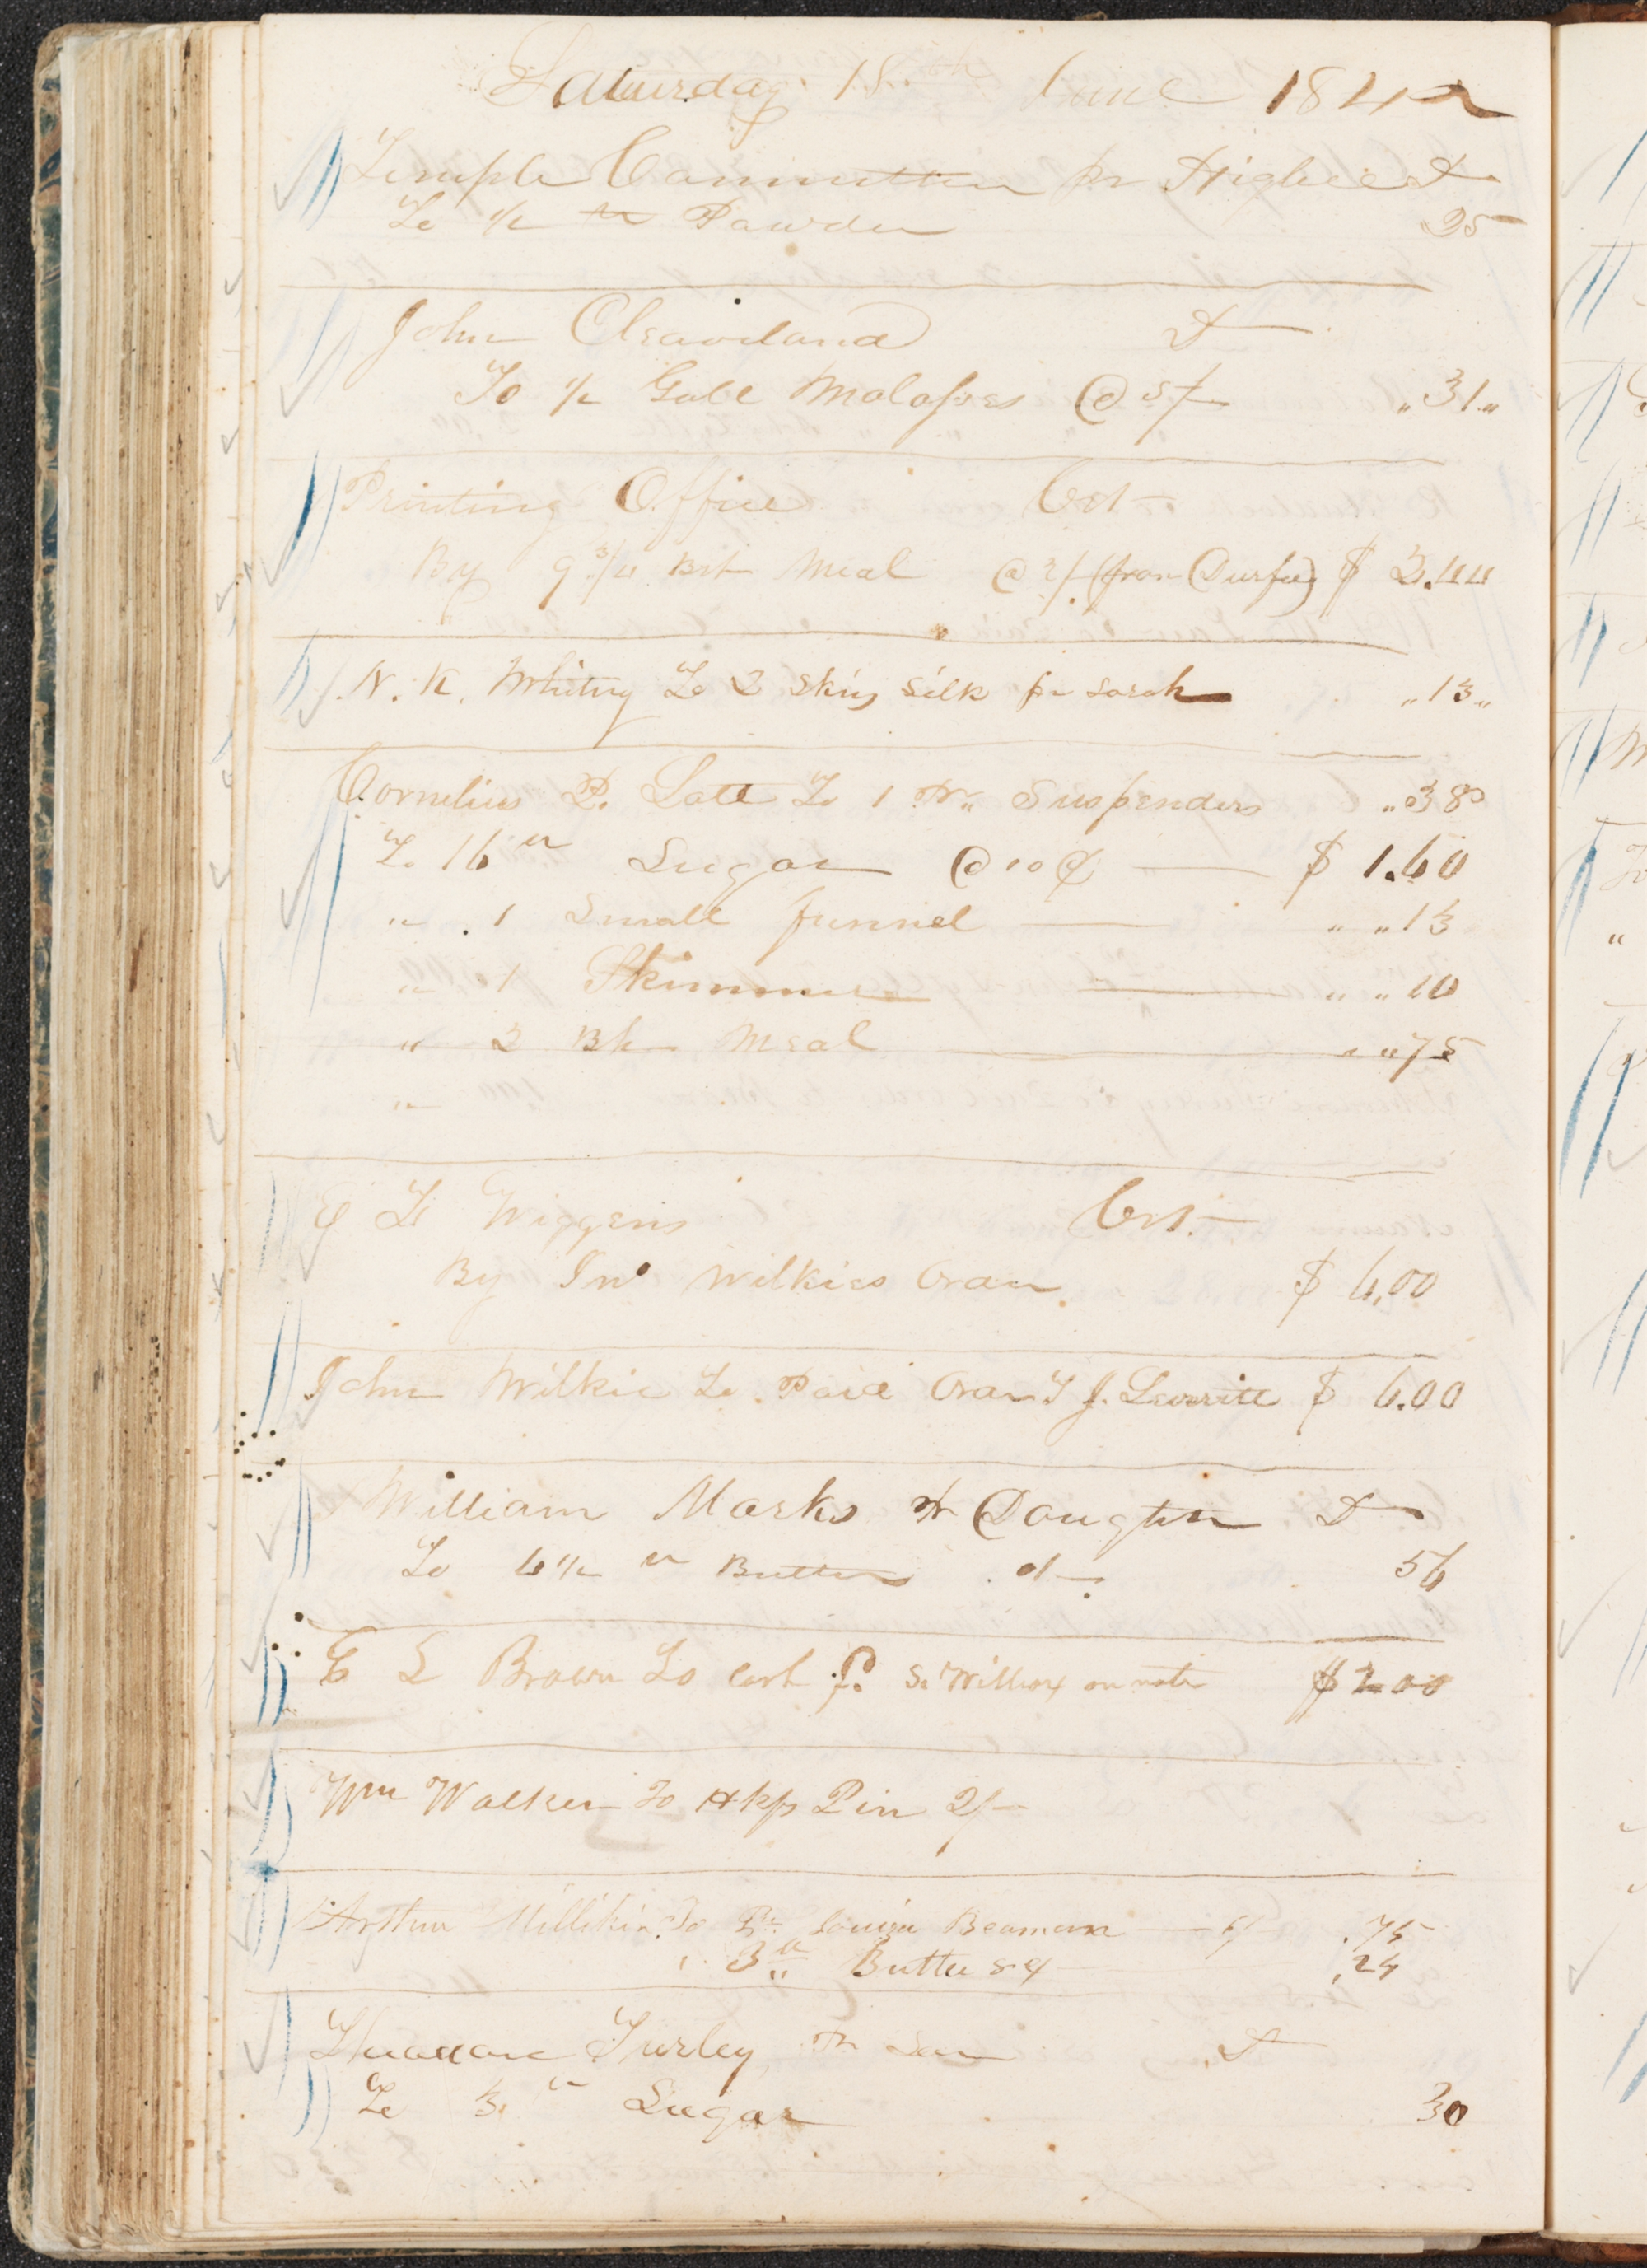 Saturday 18th June 1842
Temple Committee pr Higbee Dr
To 1/2 lb Powder 25
John Cleaveland Dr
To 1/2 Gall Molasses @ 5/ " 31 "
Printing Office Cr
By 9 3/4 Bsh Meal @ 2/ (from Durfee) $ 2.44
N. K. Whitny To 2 Skins Silk pr Sarah " 13 "
Cornelius P. Lott To 1 Pr " Suspenders " 38
To 16 lb Sugar @ 10 ¢ $ 1.60
" 1 Small funnel " " 13
" 1 Skimmer " " 10
" 3 Bh Meal " " 75
"
E T Wiggens Cr
By Jno Wilkies $ 6.00
John Wilkie To Paid $ 6.00
William Marks Pr Daugter Dr
To 4 1/2 lb Butter 56
E L Brown To Cash S. Willcox on note $ 2 00
Wm Walker To Hkf Pin 2/
Arthur Millikin To Pr Louisa Beaman 6/ .75
" 3 lb " Butter 8 ¢ .24
Theodore Turley Pr Son Dr
To 3 lb Sugar 30